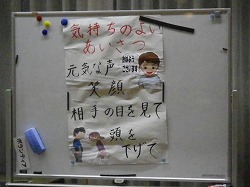 気持ちのよい
あいさつ
元気な声
笑顔
相手の目を見て
頭を
下げて